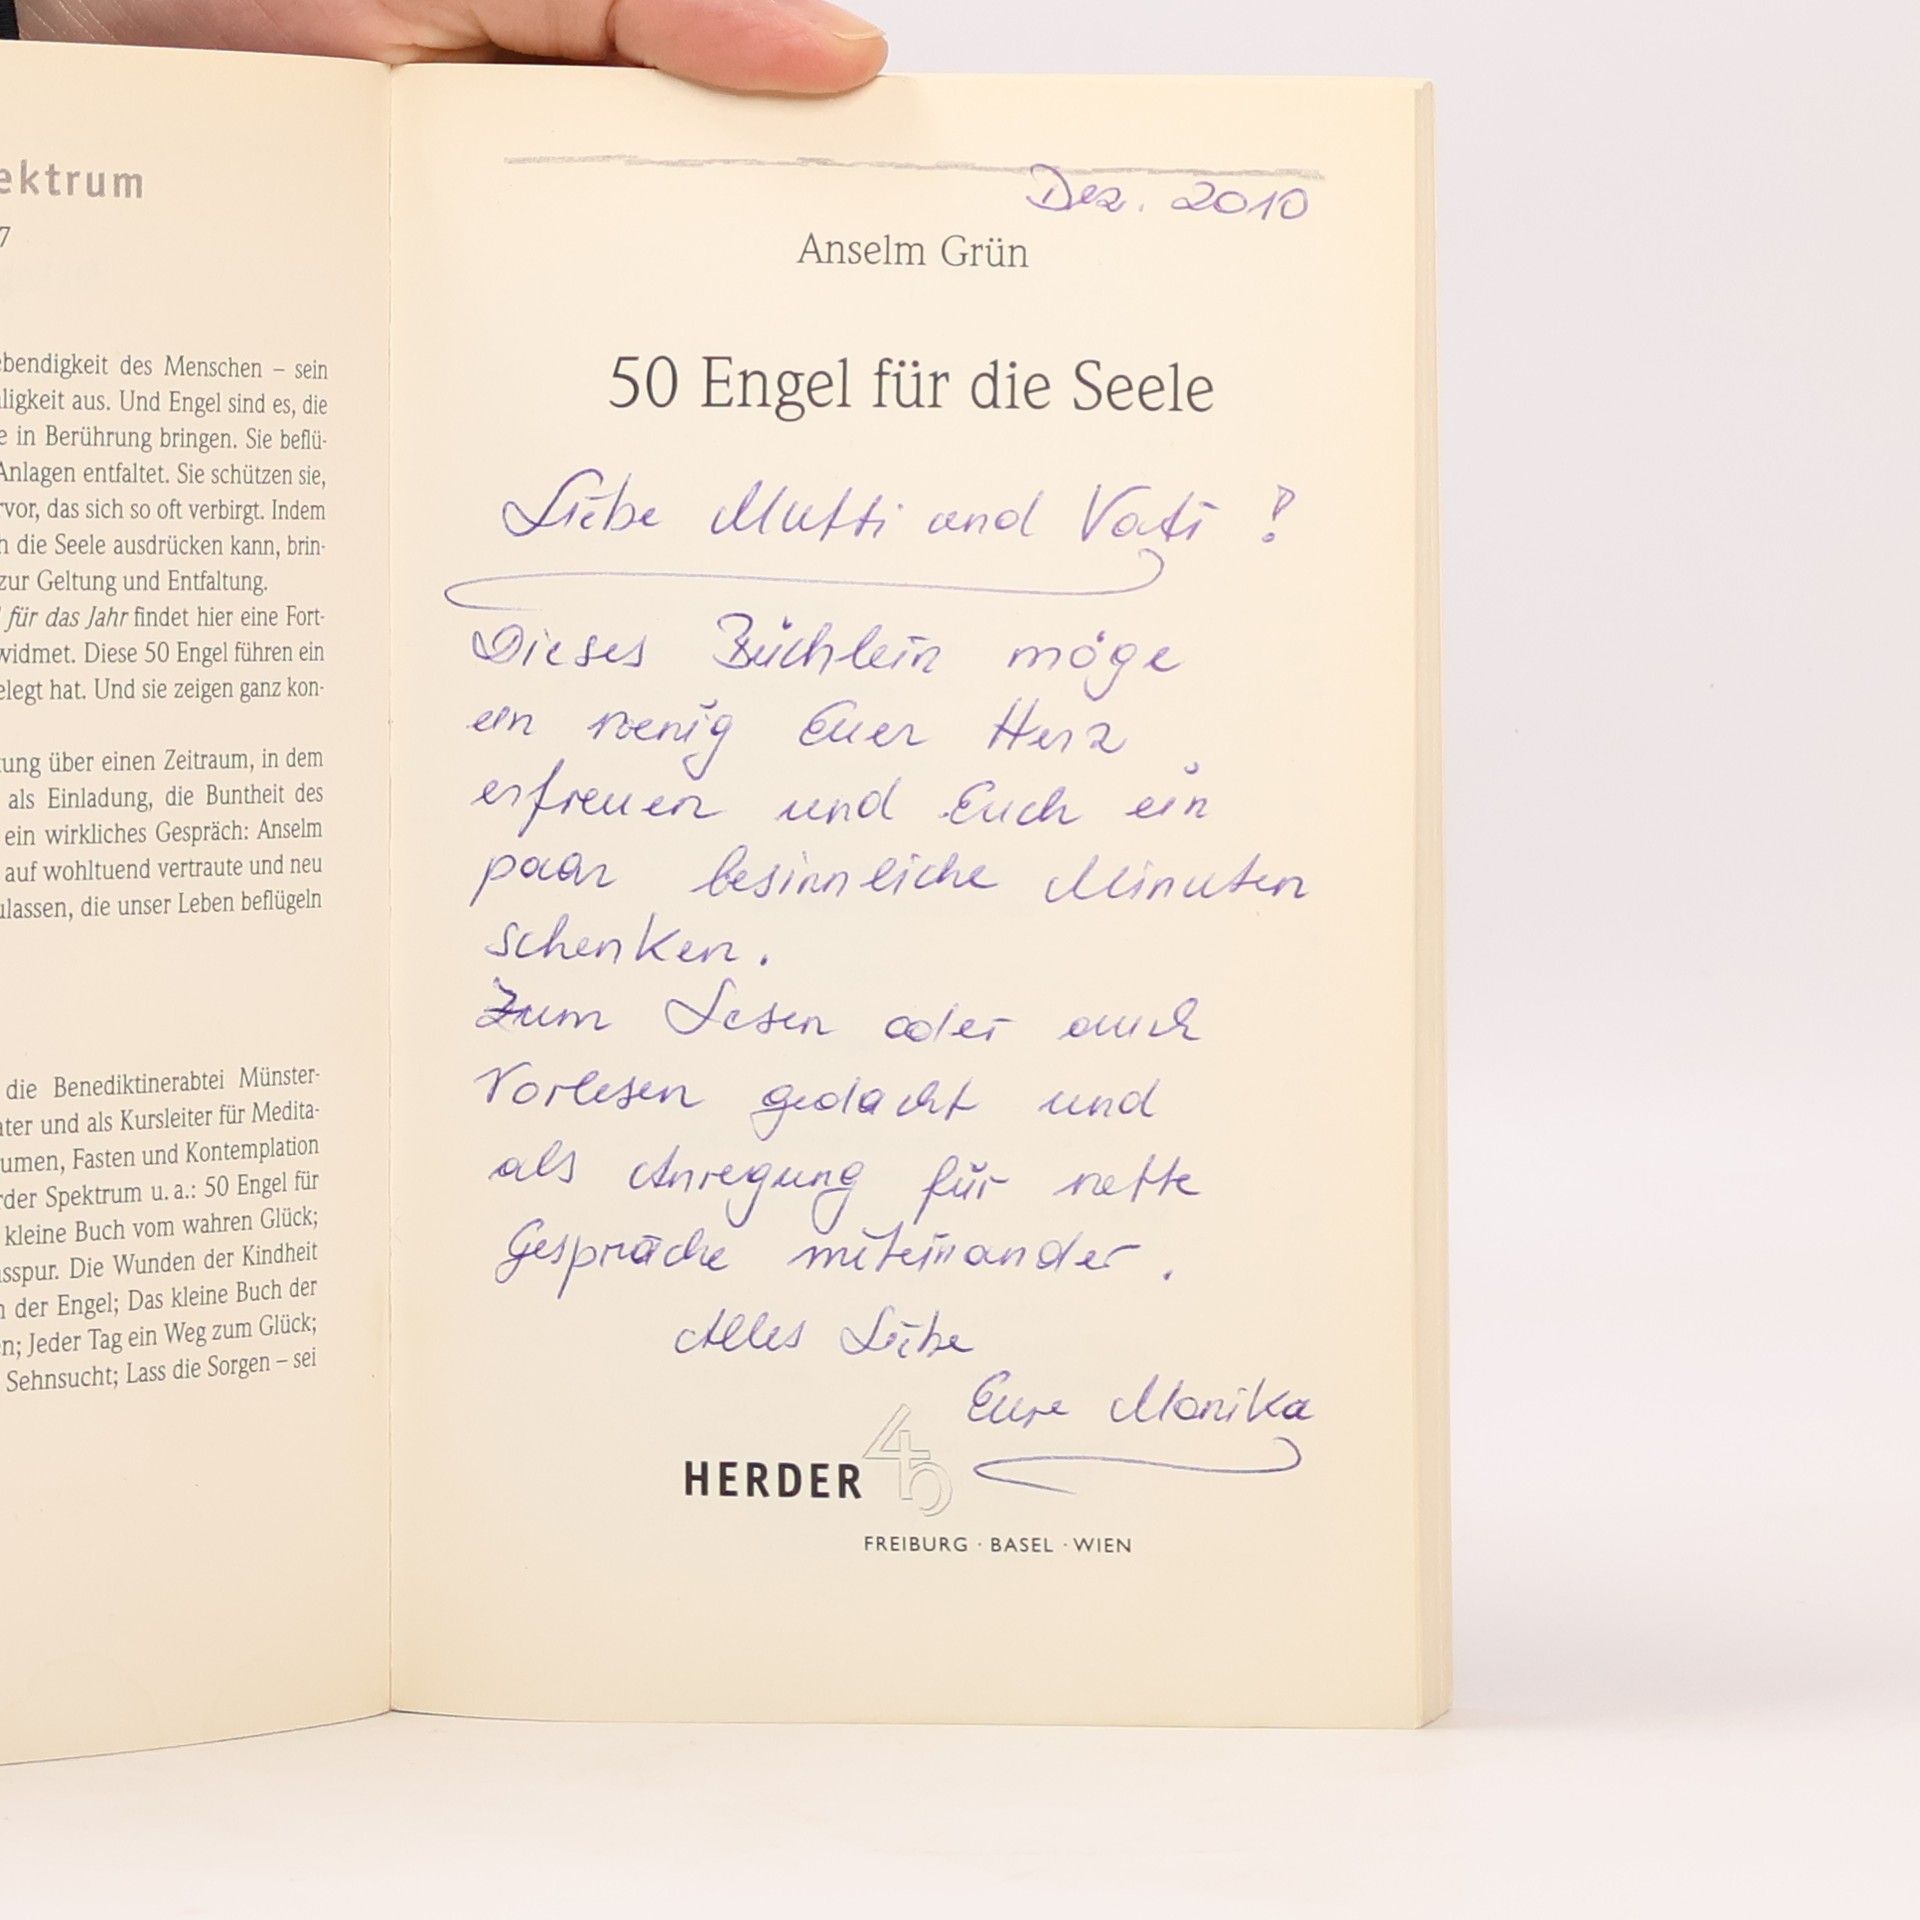 ektrum
7
ebendigkeit des Menschen – sein
ligkeit aus. Und Engel sind es, die
e in Berührung bringen. Sie beflü-
Anlagen entfaltet. Sie schützen sie,
rvor, das sich so oft verbirgt. Indem
h die Seele ausdrücken kann, brin-
zur Geltung und Entfaltung.
für das Jahr findet hier eine Fort-
widmet. Diese 50 Engel führen ein
elegt hat. Und sie zeigen ganz kon-
tung über einen Zeitraum, in dem
als Einladung, die Buntheit des
ein wirkliches Gespräch: Anselm
auf wohltuend vertraute und neu
ulassen, die unser Leben beflügeln
die Benediktinerabtei Münster-
ater und als Kursleiter für Medita-
umen, Fasten und Kontemplation
rder Spektrum u. a.: 50 Engel für
kleine Buch vom wahren Glück;
sspur. Die Wunden der Kindheit
n der Engel; Das kleine Buch der
en; Jeder Tag ein Weg zum Glück;
Sehnsucht; Lass die Sorgen – sei
Dez. 2010
Anselm Grün
50 Engel für die Seele
Liebe Mutti und Vati !
Dieses Büchlein möge
ein wenig Euer Herz
erfreuen und Euch ein
paar besinnliche Minuten
schenken.
Zum Lesen oder auch
Vorlesen gedacht und
als Anregung für nette
Gespräche miteinander.
Alles Liebe
Eure Monika
HERDER
FREIBURG · BASEL · WIEN